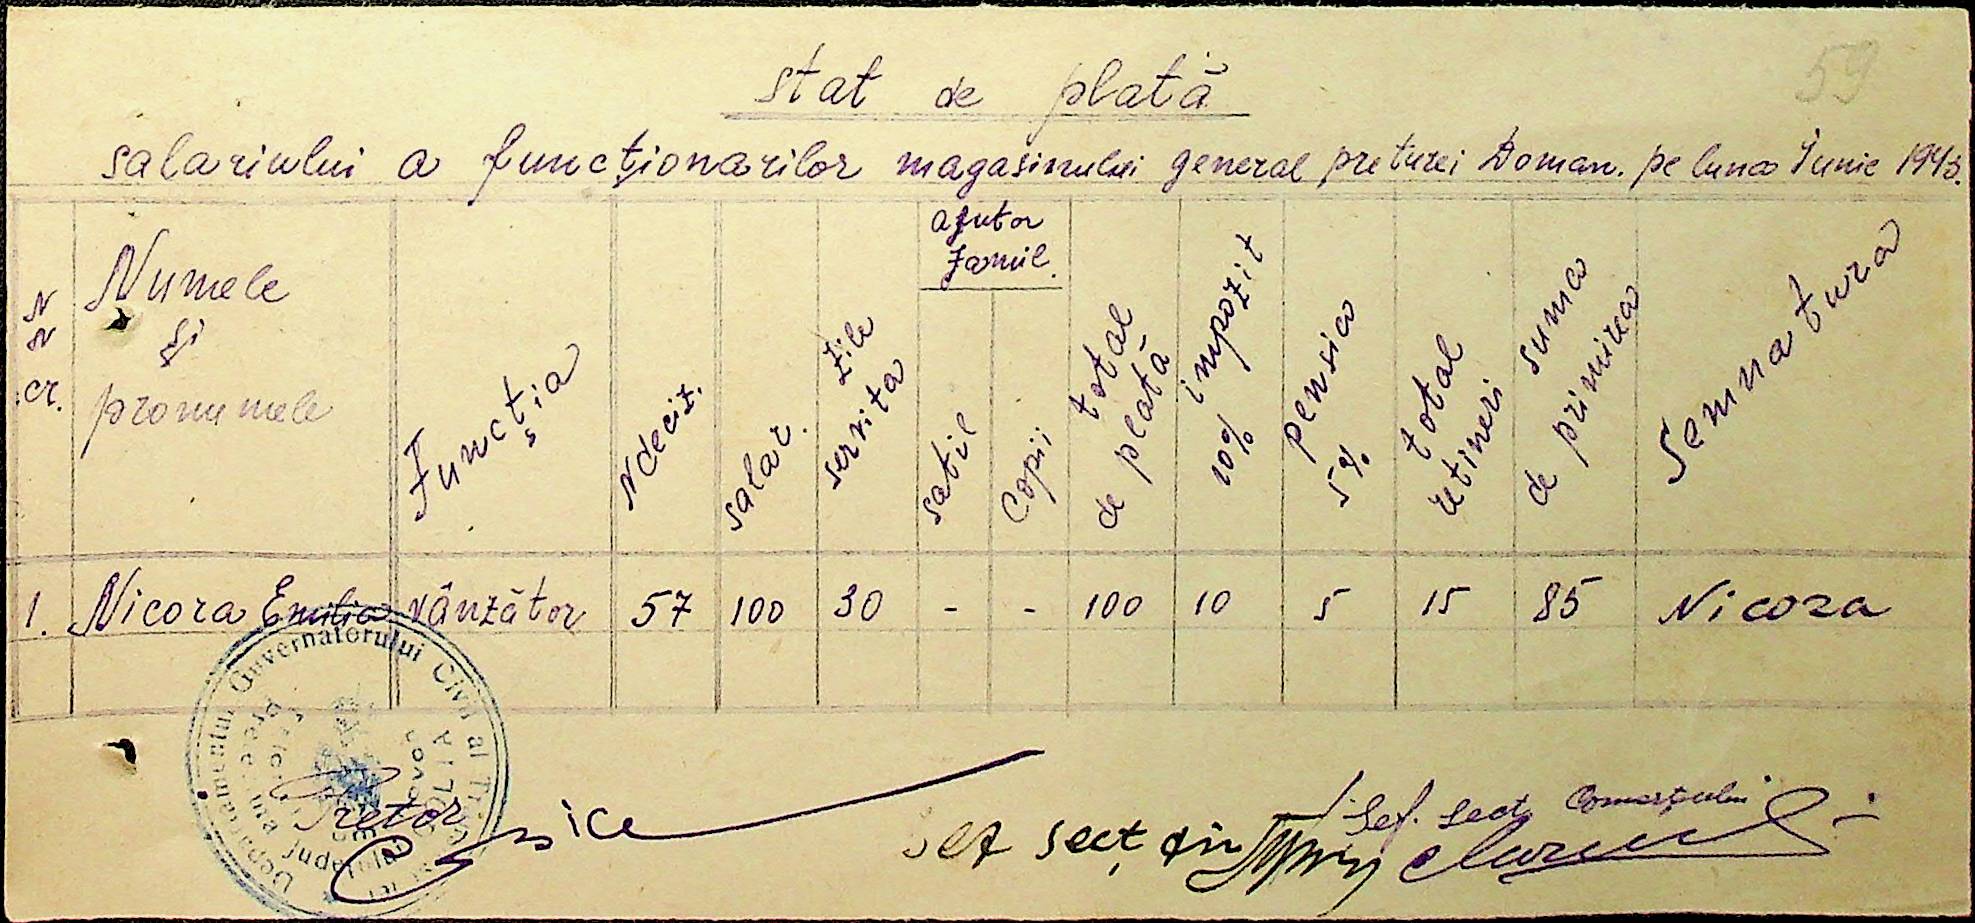 59
Stat de plată
salariului a funcționarilor magasinului general preturei Doman. pe luna Iunie 1943.
Nr cr.
Numele și pronumele
Funcția
N deciz.
salar.
Zile servita
Ajutor Famil.
satil
Copii
total de plată
impozit 10%
pensia 5%
total rețineri
suma de primirea
Semnatura
1. Nicora Emilia vânzător 57 100 30 - - 100 10 5 15 85 Nicora
Departamentul Guvernatorului Civil al
Pretor
Șef sect. fin
Șef. sect. Comerțului